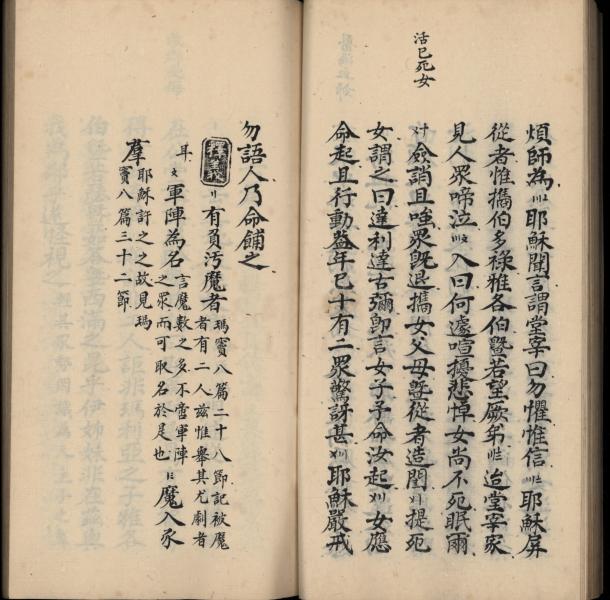 活已死女
煩師為耶穌聞言謂堂宰曰勿懼惟信耶穌屏
從者惟攜伯多祿雅各伯暨若望厥弟迨堂宰家
見人眾啼泣入曰何遽喧擾悲悼女尚不死眠爾
僉誚且嗤眾既退攜女父母暨從者造閨提死
女謂之曰達利達古彌卽言女子予命汝起女應
命起且行動葢年已十有二眾驚訝甚耶穌嚴戒
勿語人乃命餔之
釋義 有負汚魔者
瑪竇八篇二十八節記被魔
者有二人兹惟舉其尤劇者
耳 軍陣為名
言魔數之多不啻軍陣
之眾而可取名於是也
魔入豕
羣
耶穌許之之故見瑪
竇八篇三十二節